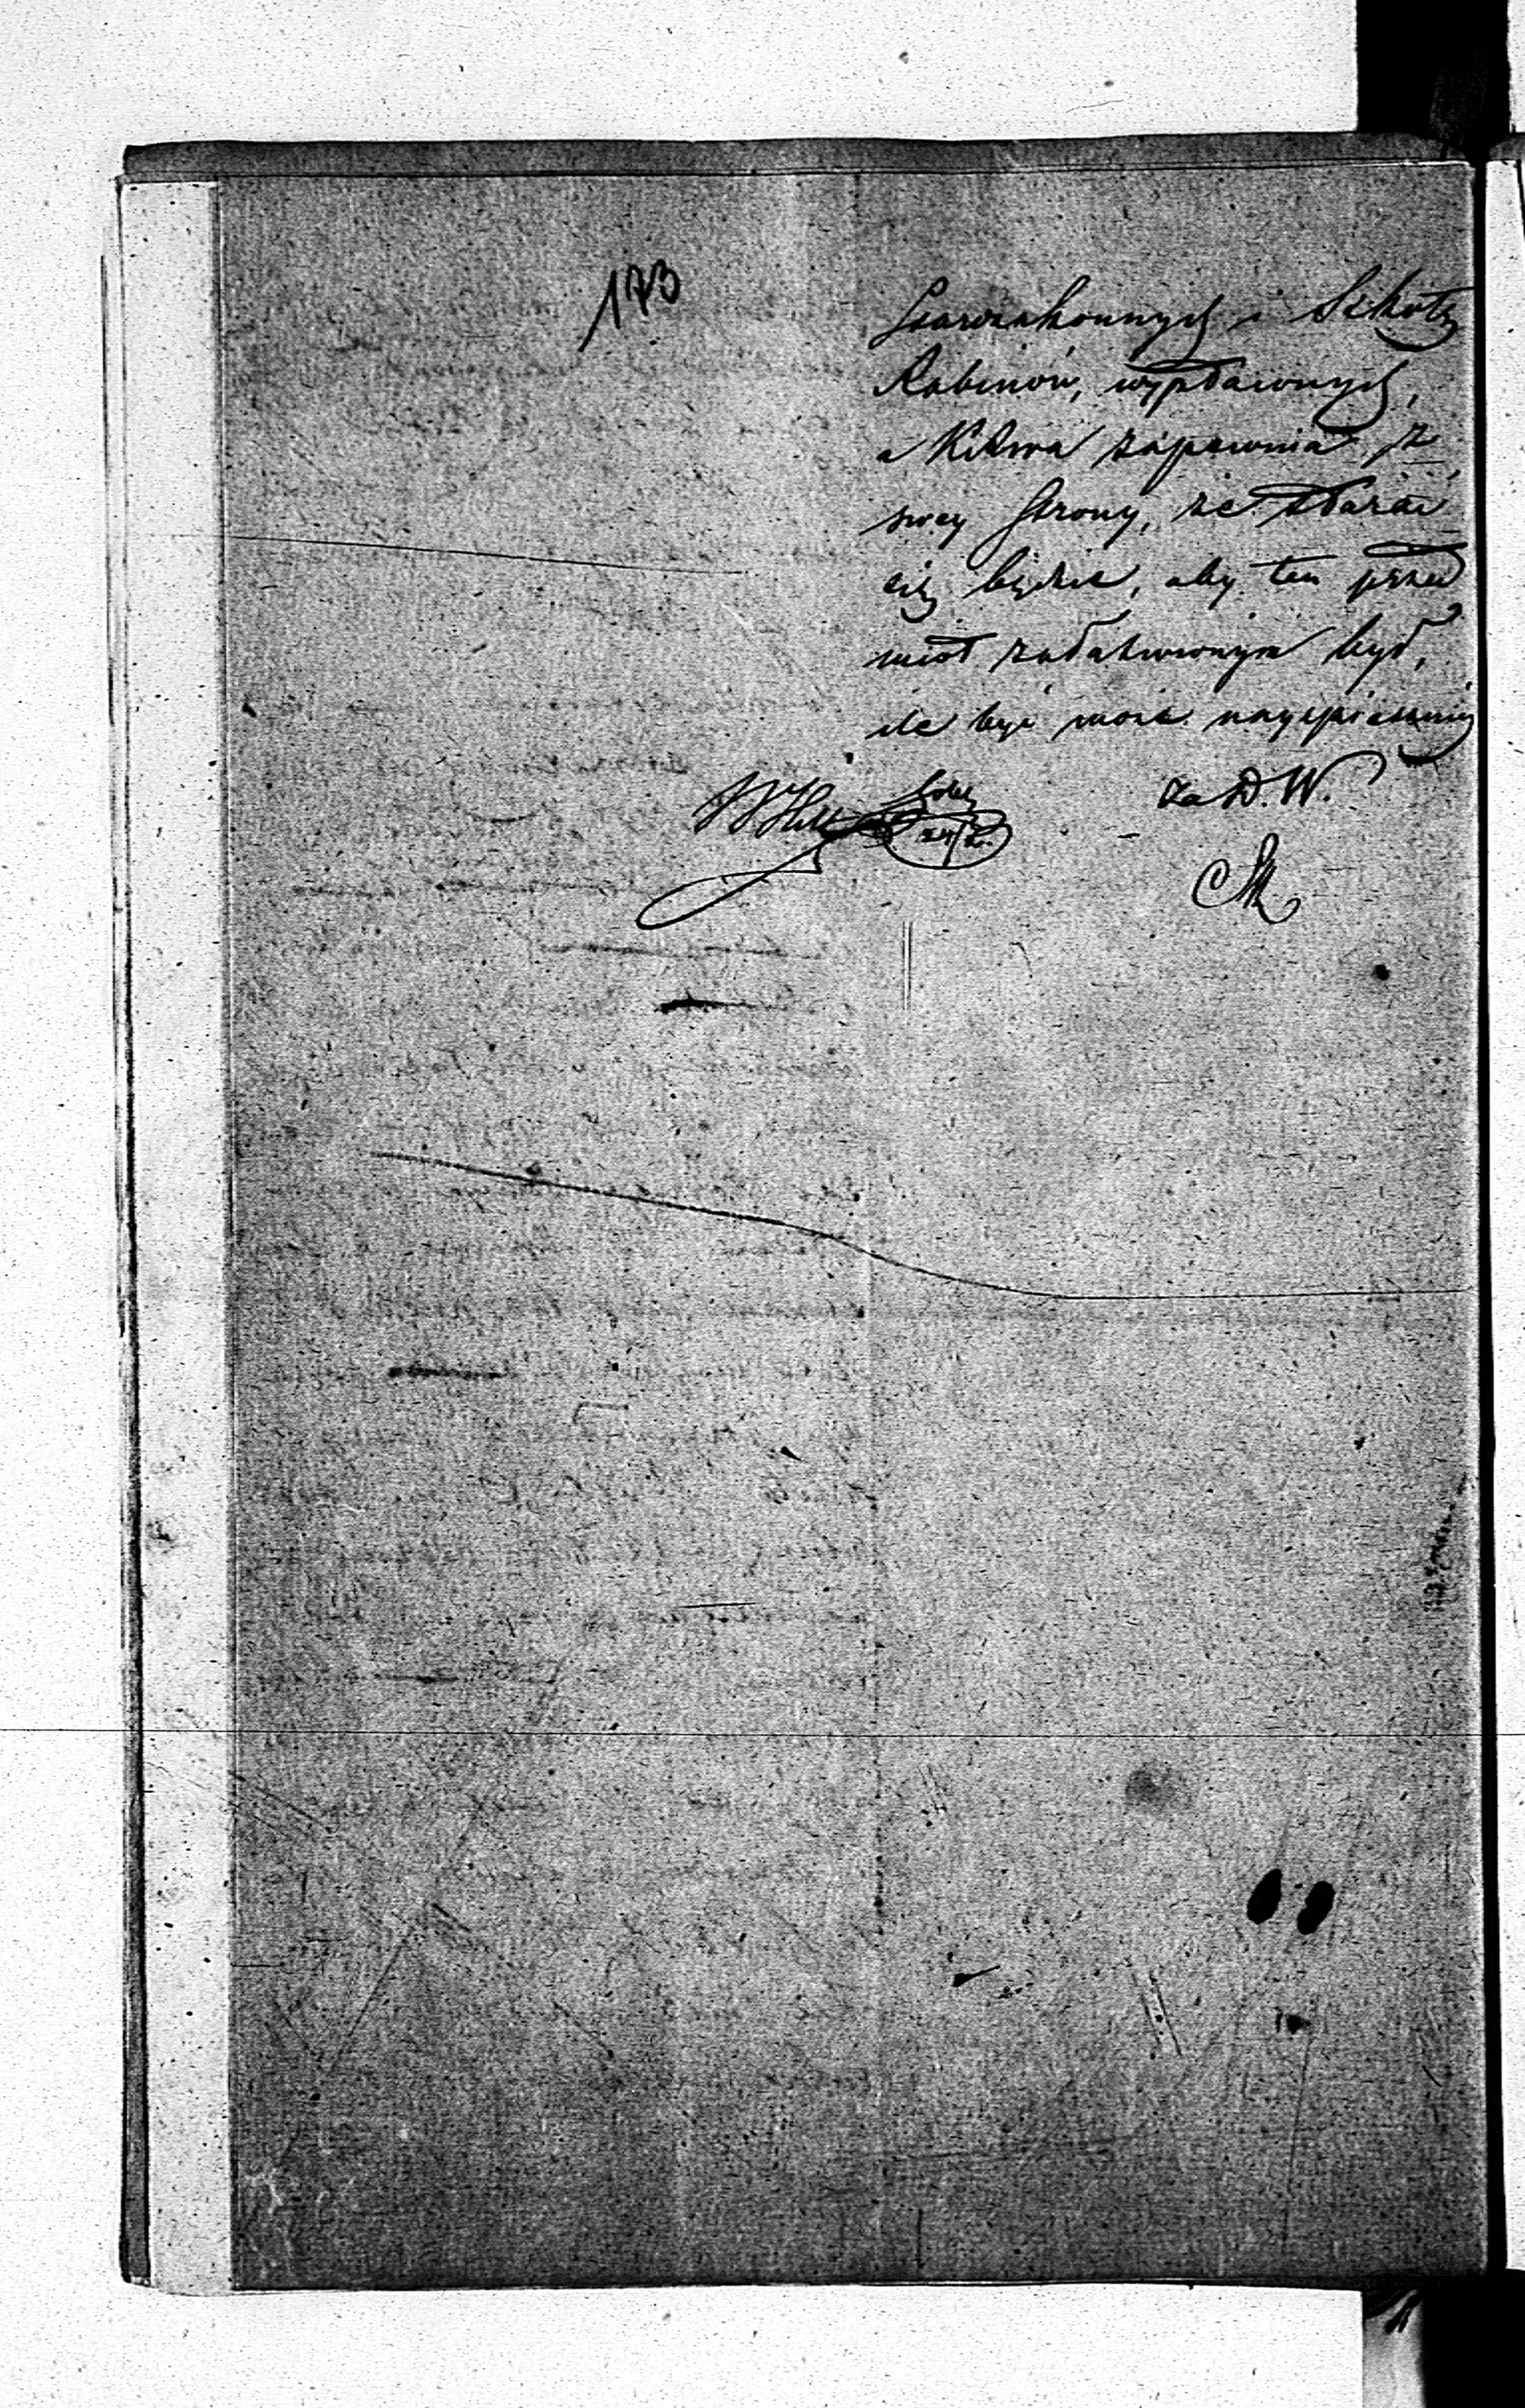 173
Starozakonnych i Szkoły
Rabinów, wypłaconych,
a KRwa zapewnia z
swey strony, że starać
się będzie, aby ten przed
miot załatwionym był,
ile być może nayspieszniej
Za D. W.